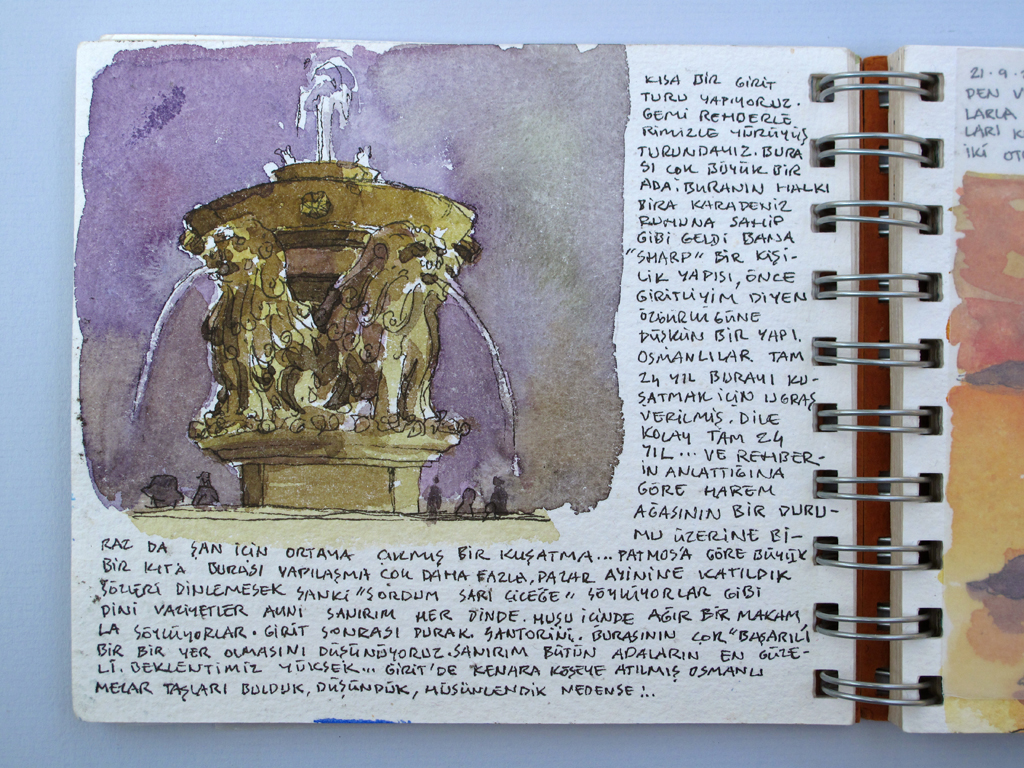 KISA BİR GİRİT
TURU YAPIYORUZ.
GEMİ REHBERLE
RİMİZLE YÜRÜYÜŞ
TURUNDAYIZ. BURA
SI ÇOK BÜYÜK BİR
ADA. BURANIN HALKI
BİRA KARADENİZ
RUHUNA SAHİP
GİBİ GELDİ BANA
"SHARP" BİR KİŞİ-
LİK YAPISI, ÖNCE
GİRİTLİYİM DİYEN
ÖZGÜRLÜĞÜNE
DÜŞKÜN BİR YAPI.
OSMANLILAR TAM
24 YIL BURAYI KU-
ŞATMAK İÇİN UĞRAŞ
VERİLMİŞ. DİLE
KOLAY TAM 24
YIL... VE REHBER-
İN ANLATTIĞINA
GÖRE HAREM
AĞASININ BİR DURU-
MU ÜZERİNE Bİ-
RAZ DA ŞAN İÇİN ORTAYA ÇIKMIŞ BİR KUŞATMA... PATMOS'A GÖRE BÜYÜK
BİR KITA BURASI YAPILAŞMA ÇOK DAHA FAZLA, PAZAR AYİNİNE KATILDIK
SÖZLERİ DİNLEMESEK SANKİ "SORDUM SARI ÇİÇEĞE" SÖYLÜYORLAR GİBİ
DİNİ VAZİYETLER AYNI SANIRIM HER DİNDE. HUŞU İÇİNDE AĞIR BİR MAKAM,
LA SÖYLÜYORLAR. GİRİT SONRASI DURAK SANTORİNİ. BURASININ ÇOK "BAŞARILI
BİR BİR YER OLMASINI DÜŞÜNÜYORUZ. SANIRIM BÜTÜN ADALARIN EN GÜZE-
Lİ. BEKLENTİMİZ YÜKSEK... GİRİT'DE KENARA KÖŞEYE ATILMIŞ OSMANLI
MEZAR TAŞLARI BULDUK, DÜŞÜNDÜK, HÜSÜNLENDİK NEDENSE!..
21.9.
DEN
LARLA
LARI
İKİ